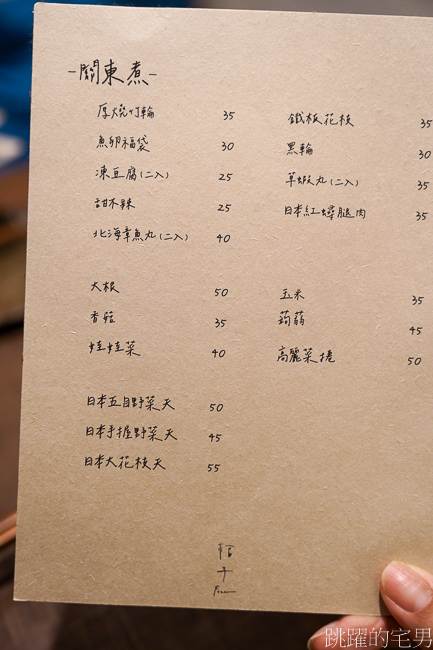 -關東煮-
厚燒竹輪 35
魚卵福袋 30
凍豆腐(二入) 25
甜不辣 25
北海章魚丸(二入) 40
鐵板花枝 35
黑輪 30
草蝦丸(二入) 35
日本紅蟳腿肉 35
大根 50
香菇 35
娃娃菜 40
玉米 35
蒟蒻 45
高麗菜捲 50
日本五目野菜天 50
日本手握野菜天 45
日本大花枝天 55
跳躍的宅男